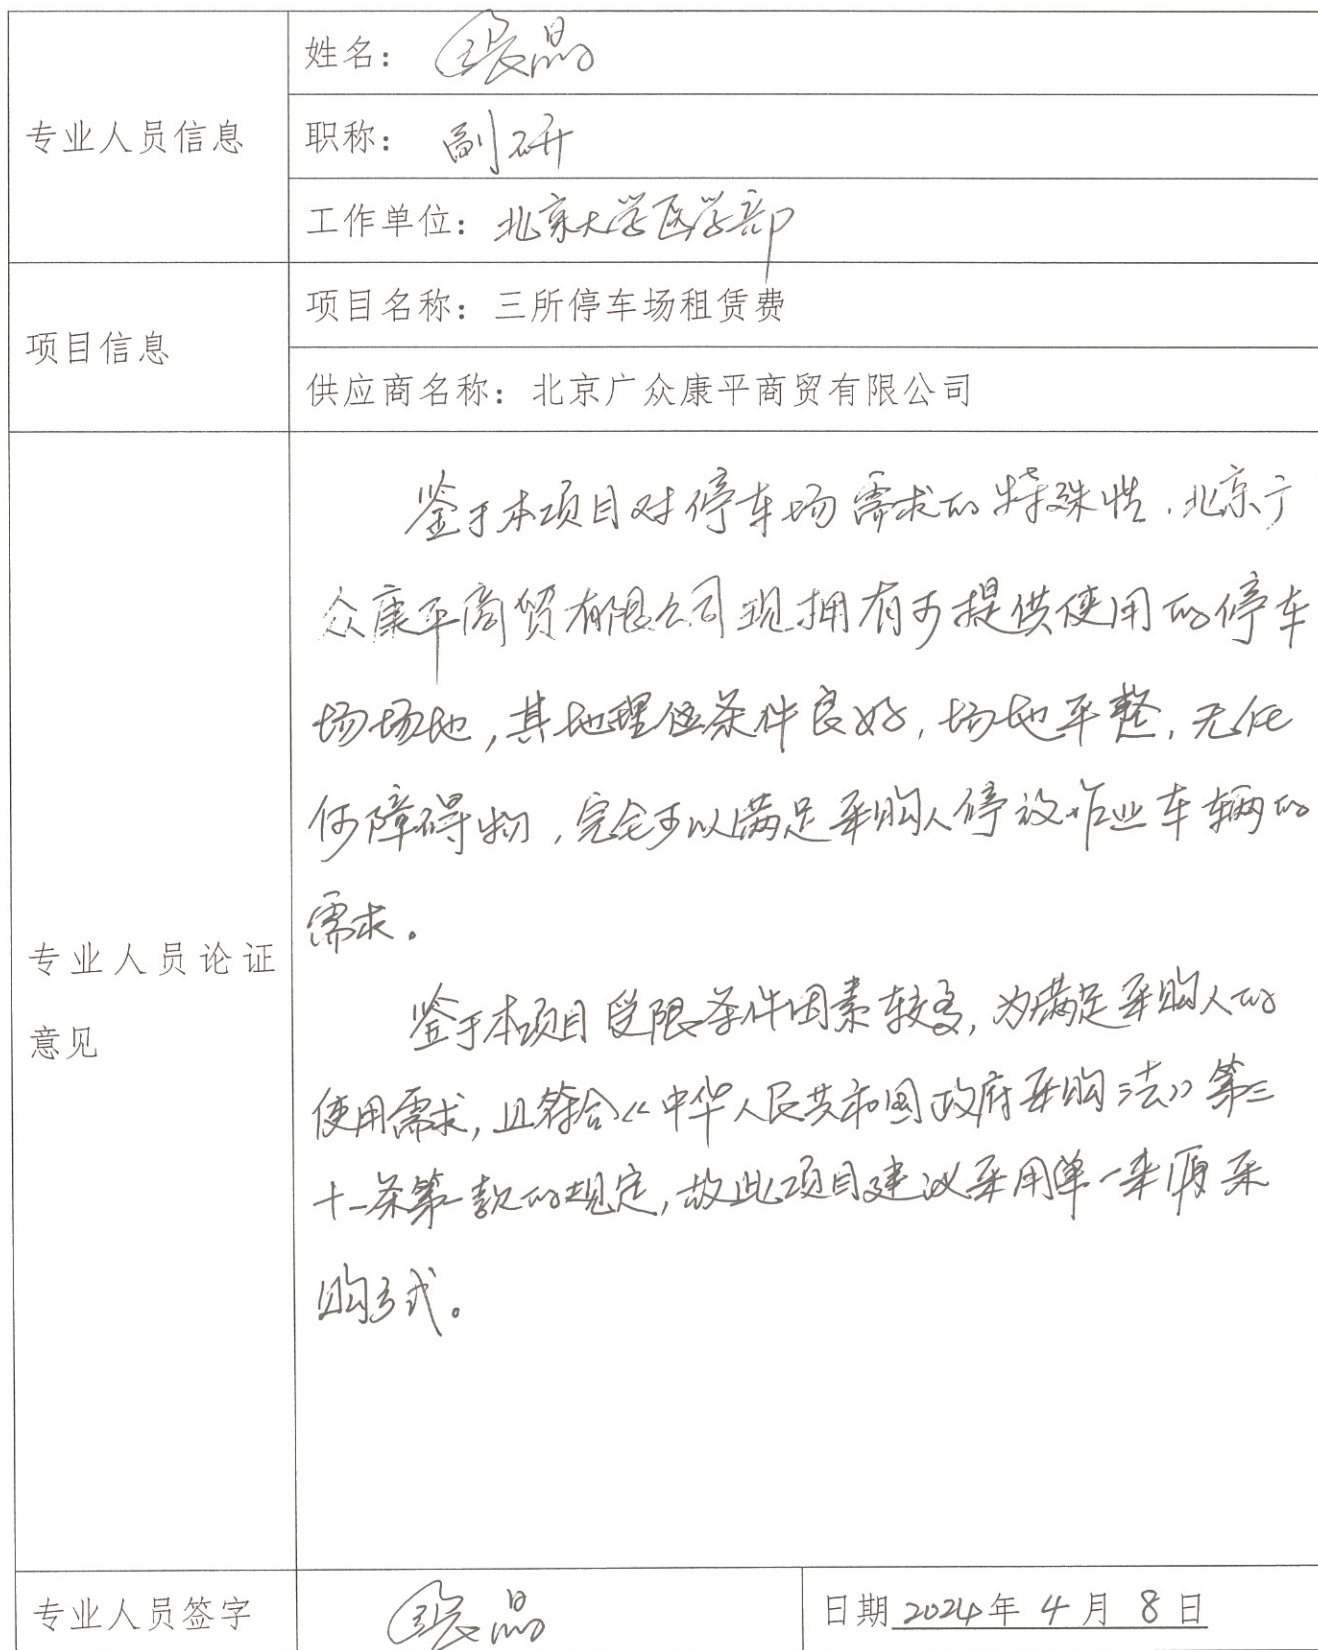 专业人员信息
姓名：张晶
职称：副研
工作单位：北京大学医学部
项目信息
项目名称：三所停车场租赁费
供应商名称：北京广众康平商贸有限公司
专业人员论证
意见
鉴于本项目对停车场需求的特殊性，北京广
众康平商贸有限公司现拥有可提供使用的停车
场场地，其地理位条件良好，场地平整，无任
何障碍物，完全可以满足采购人停放作业车辆的
需求。
鉴于本项目受限条件因素较多，为满足采购人的
使用需求，且符合《中华人民共和国政府采购法》第三
十一条第一款的规定，故此项目建议采用单一来源采
购方式。
专业人员签字
张晶
日期 2024年 4月 8日